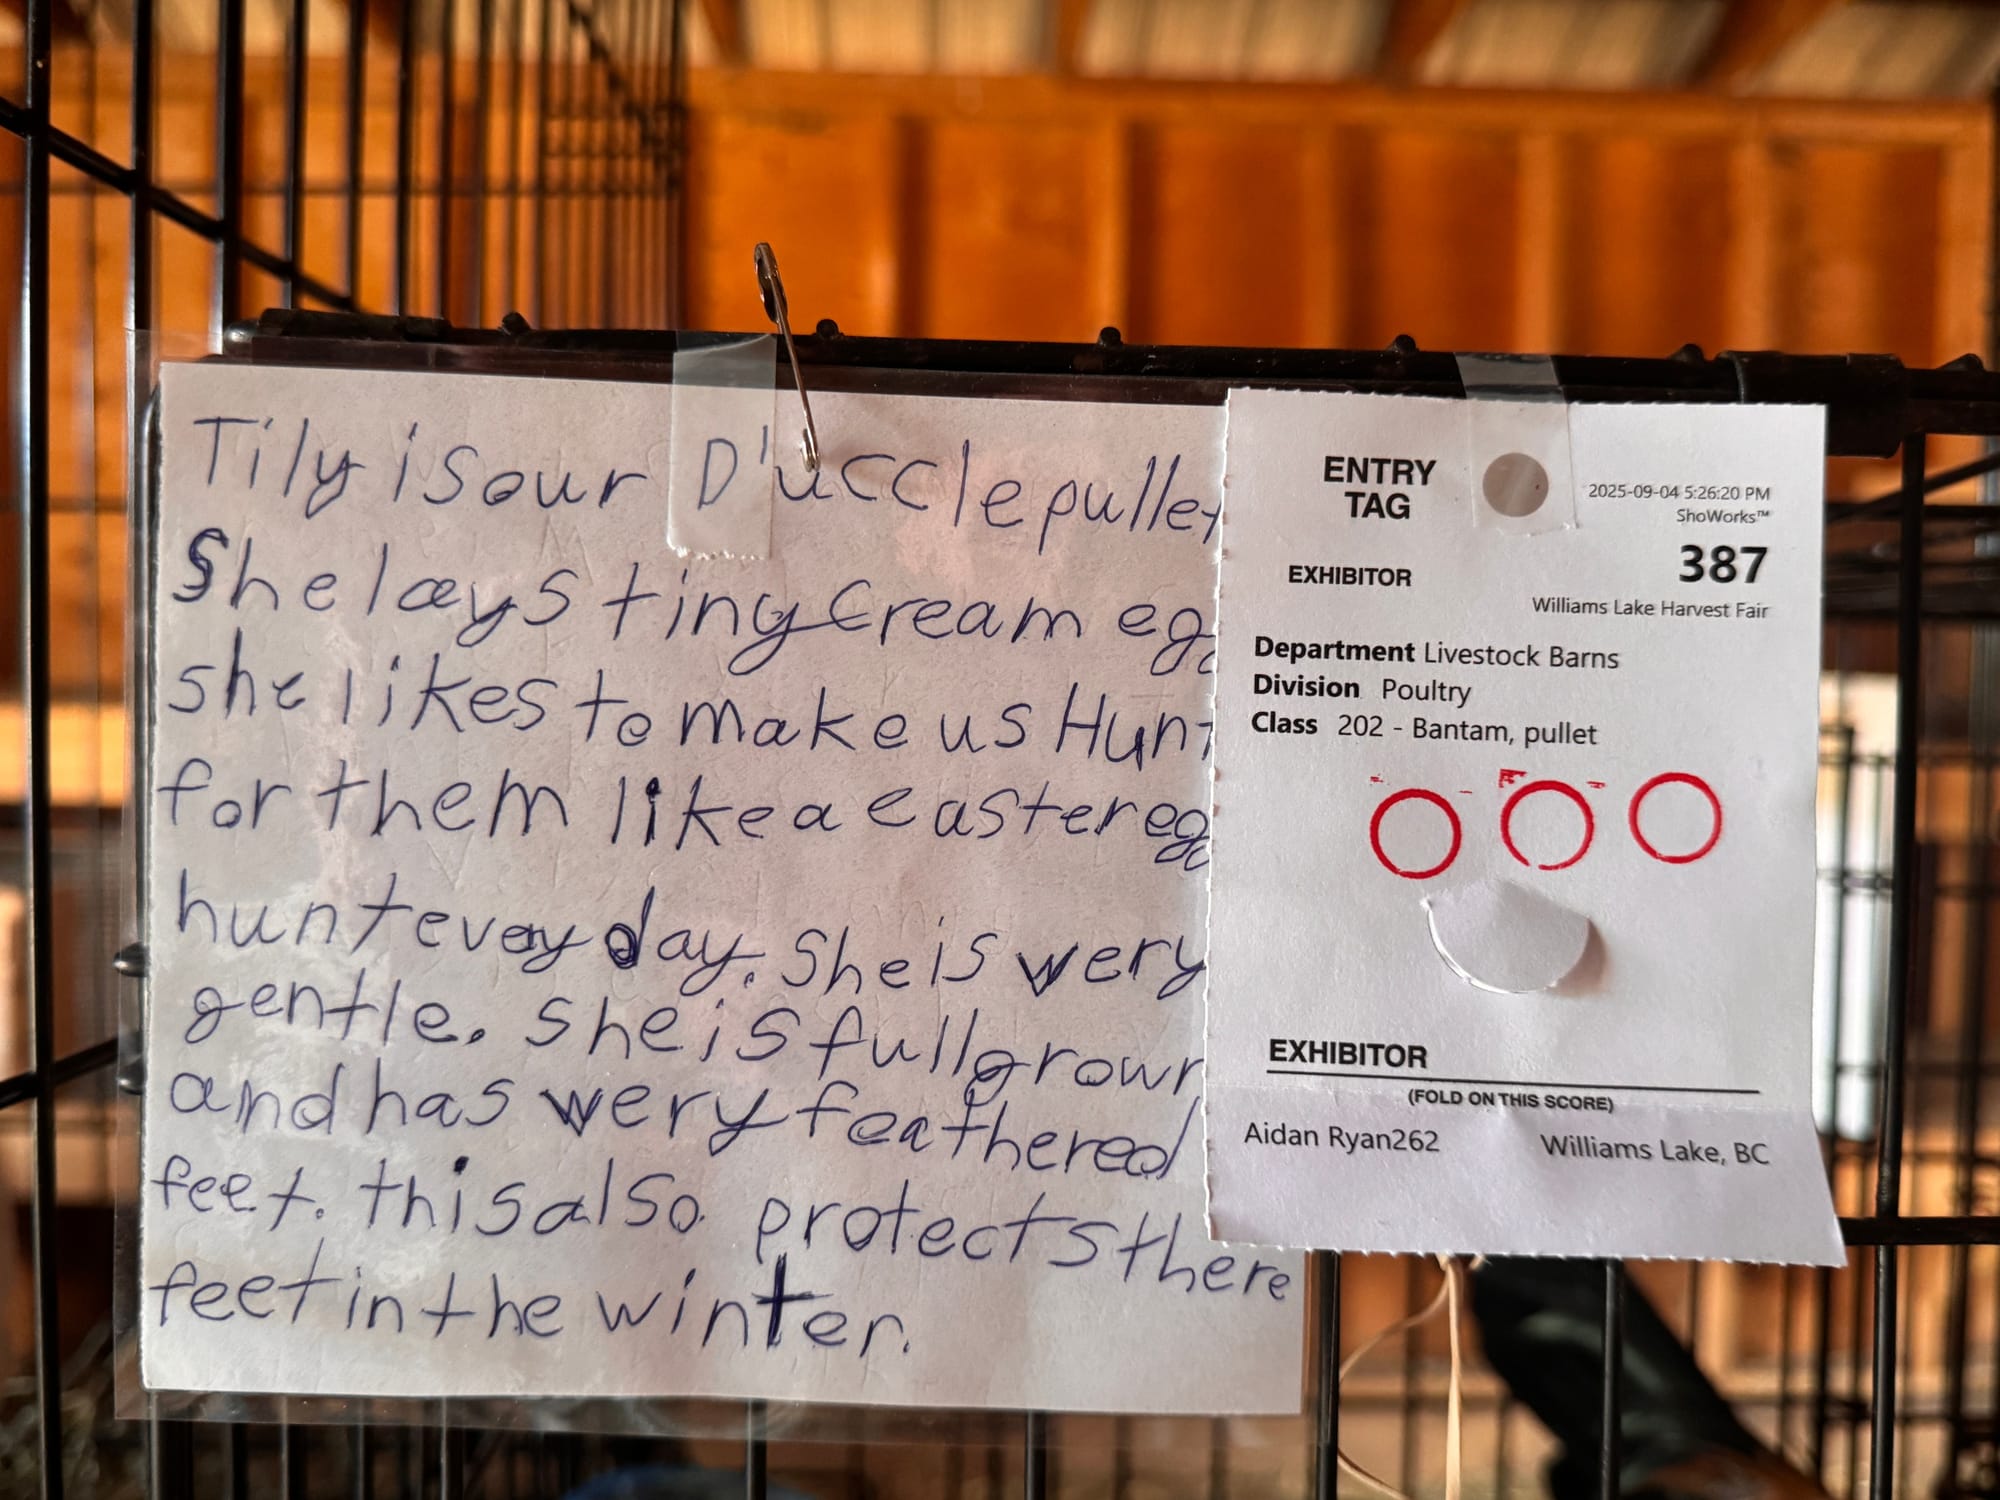 Tily is our D'uccle pullet
She lays tiny cream eg
she likes to make us Hunt
for them like a easter eg
hunt every day. She is very
gentle. She is full grown
and has very feathered
feet. this also protects there
feet in the winter.
ENTRY
TAG
2025-09-04 5:26:20 PM
ShoWorks™
387
EXHIBITOR
Williams Lake Harvest Fair
Department Livestock Barns
Division Poultry
Class 202 - Bantam, pullet
EXHIBITOR
(FOLD ON THIS SCORE)
Aidan Ryan262 Williams Lake, BC